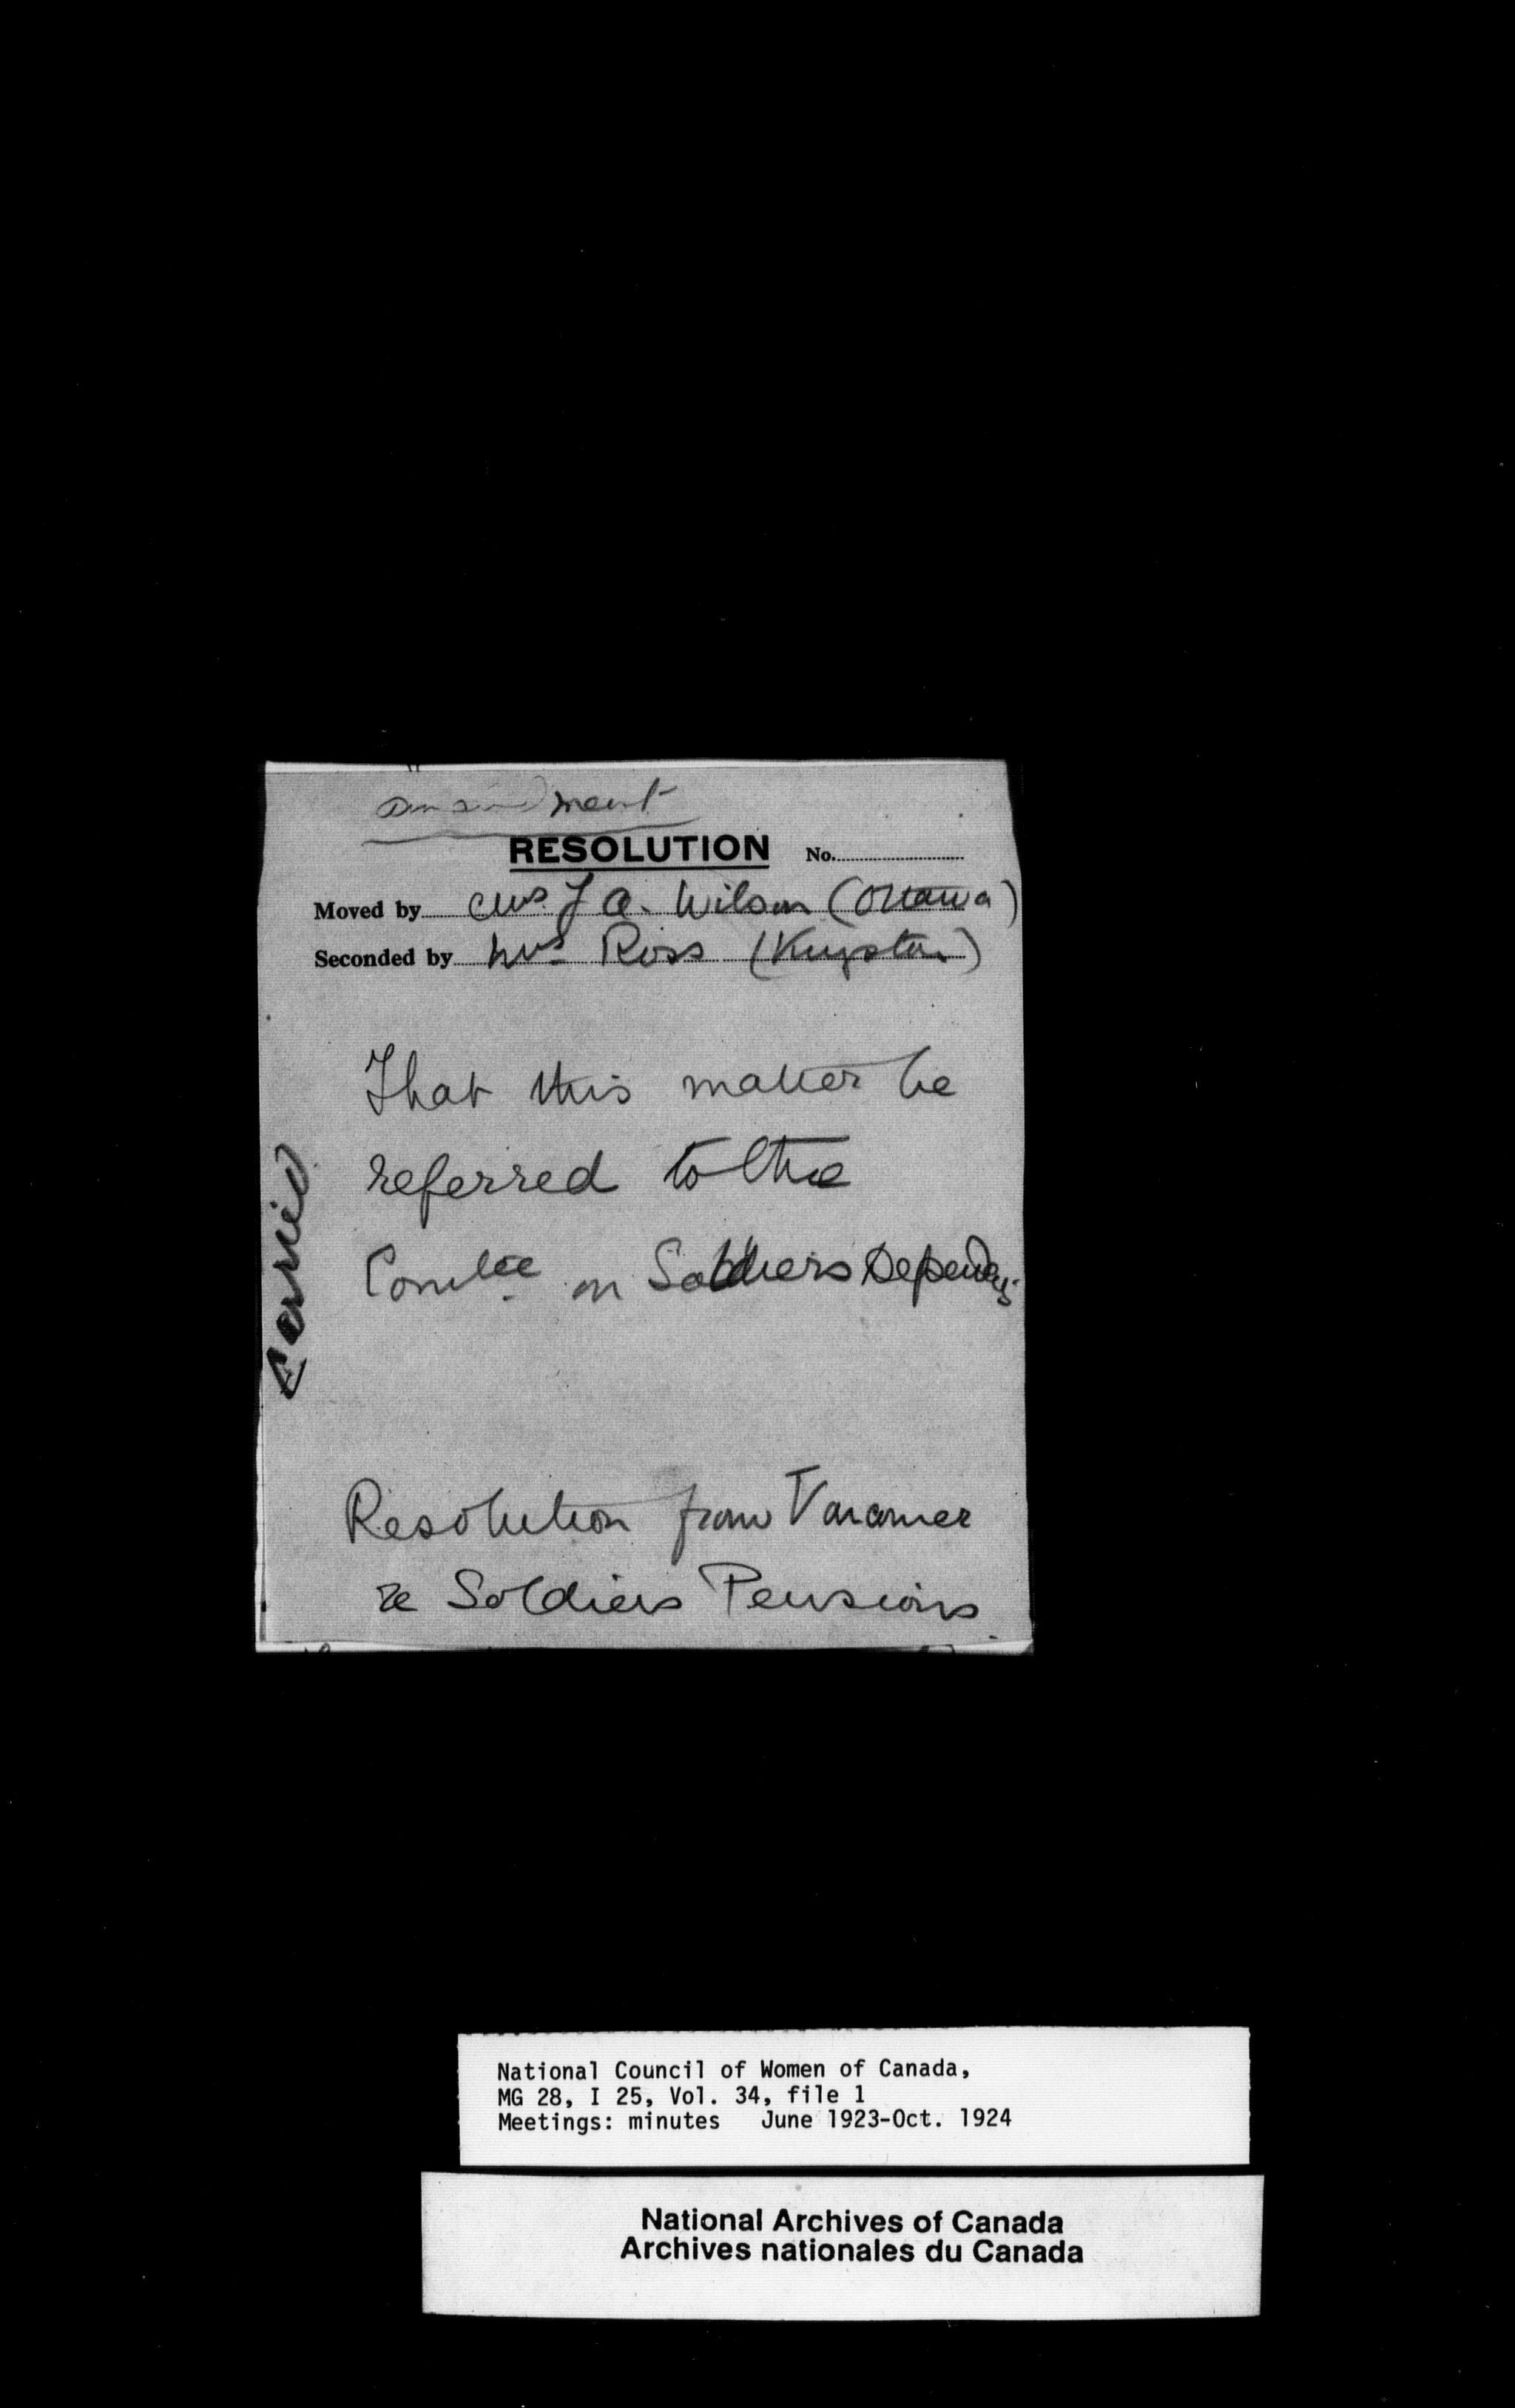 Amendment
RESOLUTION No.
Moved by Mrs J A. Wilson (Ottawa)
Seconded by Mrs Ross (Kingston)
That this matter be
referred to the
Comtee on Soldiers
Carried
Resolution from Vancouver
re Soldiers Pensions
National Council of Women of Canada,
MG 28, I 25, Vol. 34, file 1
Meetings: minutes June 1923-Oct. 1924
National Archives of Canada
Archives nationales du Canada